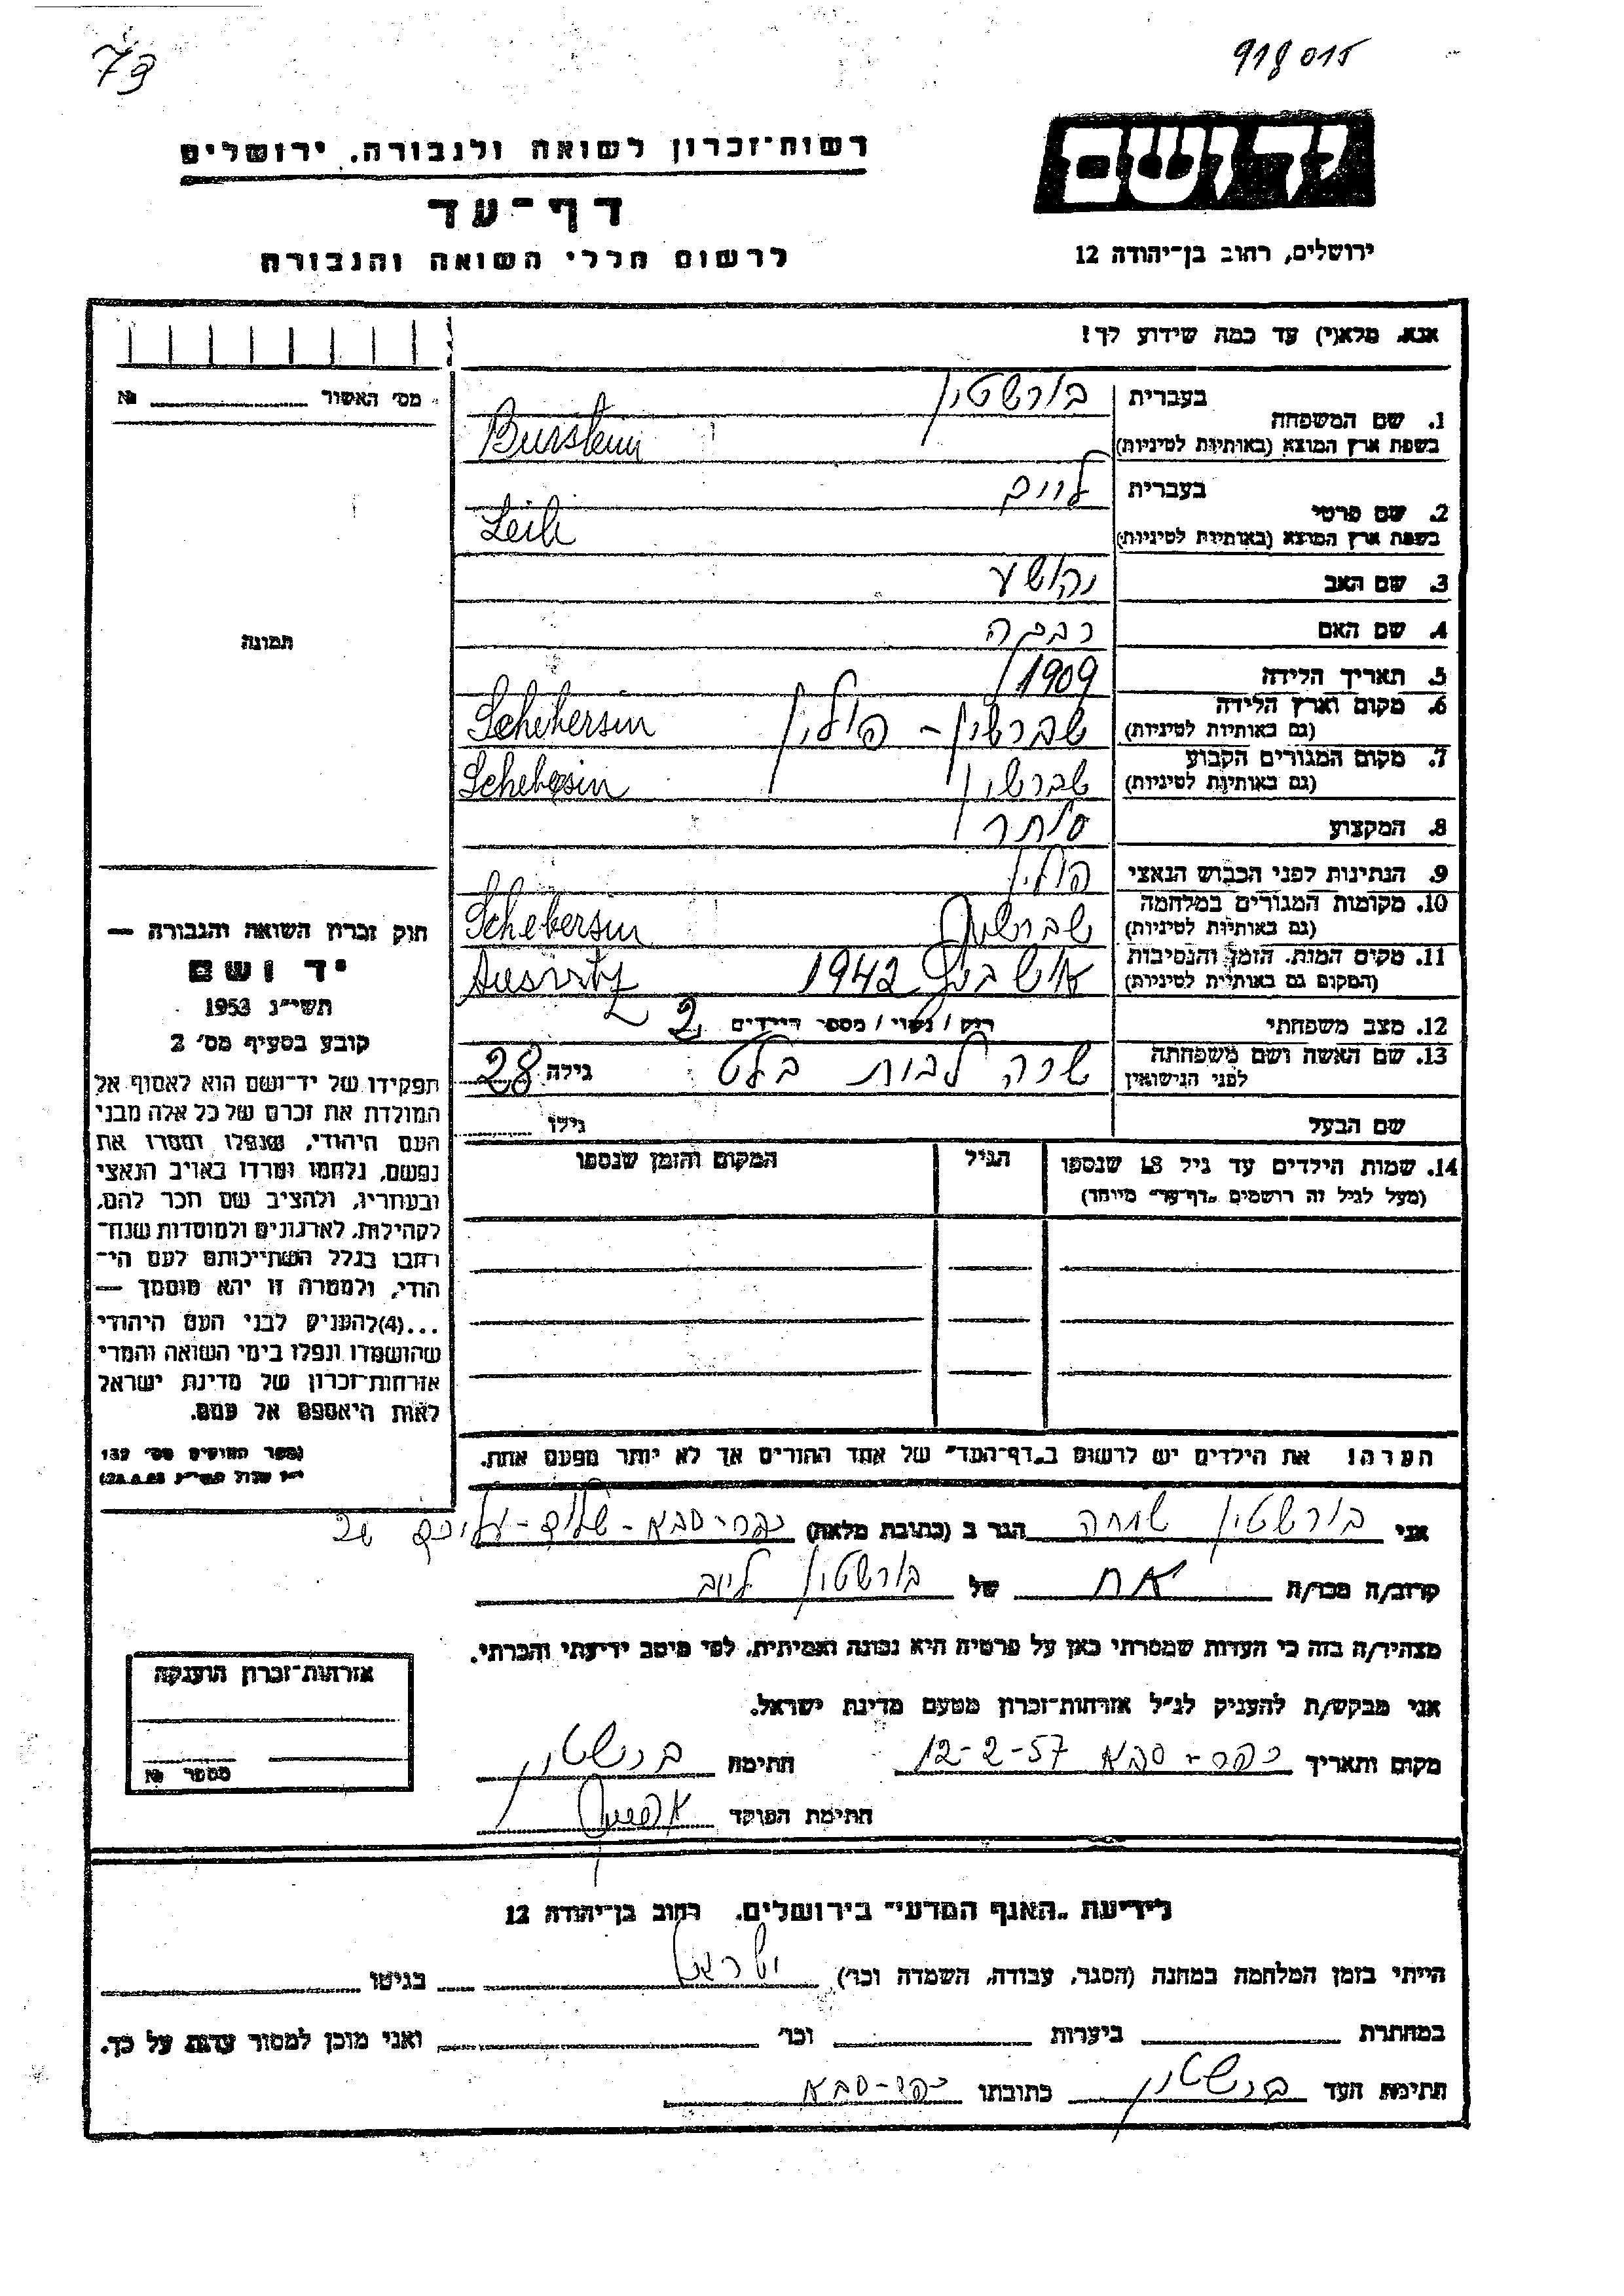 79
918 015
רשות־זכרון לשואה ולגבורה, ירושלים
יד ושם
דף־עד
לרשום חללי השואה והגבורה
ירושלים, רחוב בן־יהודה 12
אנא, מלא(י) עד כמה שידוע לך!
מס׳ האשור № 
1. שם המשפחה
בעברית בורשטין
בשפת ארץ המוצא (באותיות לטיניות) Burstein
2. שם פרטי
בעברית לייב
בשפת ארץ המוצא (באותיות לטיניות) Leib
3. שם האב יהושע
4. שם האם רבקה
5. תאריך הלידה 1909
6. מקום וארץ הלידה שברשין - פולין Schebersin
(גם באותיות לטיניות)
7. מקום המגורים הקבוע שברשין Schebersin
(גם באותיות לטיניות)
8. המקצוע סוחר
9. הנתינות לפני הכבוש הנאצי פולין
10. מקומות המגורים במלחמה שברשין Schebersin
(גם באותיות לטיניות)
11. מקום המות, הזמן והנסיבות אושביץ 1942
(המקום גם באותיות לטיניות)
12. מצב משפחתי רוק / נשוי / מספר הילדים 2
13. שם האשה ושם משפחתה שרה לבית בלט גילה 28
לפני הנישואין
שם הבעל גילו
14. שמות הילדים עד גיל 18 שנספו הגיל המקום והזמן שנספו
(מעל לגיל זה רושמים „דף־עד״ מיוחד)
תמונה
חוק זכרון השואה והגבורה —
יד ושם
תשי״ג 1953
קובע בסעיף מס׳ 2
תפקידו של יד־ושם הוא לאסוף אל
המולדת את זכרם של כל אלה מבני
העם היהודי, שנפלו ומסרו את
נפשם, נלחמו ומרדו באויב הנאצי
ובעוזריו, ולהציב שם וזכר להם,
לקהילות, לארגונים ולמוסדות שנח־
רבו בגלל השתייכותם לעם הי־
הודי, ולמטרה זו יהא מוסמך —
...(4) להעניק לבני העם היהודי
שהושמדו ונפלו בימי השואה והמרי
אזרחות־זכרון של מדינת ישראל
לאות היאספם אל עמם.
(ספר החוקים מס׳ 132
הערה! את הילדים יש לרשום ב„דף־העד״ של אחד ההורים אך לא יותר מפעם אחת.
אני בורשטין שמחה הגר ב (כתובת מלאה) כפר-סבא - שלום-עליכם
קרוב/ה מכר/ה אח של בורשטין לייב
מצהיר/ה בזה כי העדות שמסרתי כאן על פרטיה היא נכונה ואמיתית, לפי מיטב ידיעתי והכרתי.
אני מבקש/ת להעניק לנ״ל אזרחות־זכרון מטעם מדינת ישראל.
מקום ותאריך כפר-סבא 12-2-57 חתימה בורשטין
חתימת הפוקד
אזרחות־זכרון הוענקה
מספר №
לידיעת „האגף המדעי״ בירושלים, רחוב בן־יהודה 12
הייתי בזמן המלחמה במחנה (הסגר, עבודה, השמדה וכו׳) ישראל בגיטו
במחתרת ביערות וכו׳ ואני מוכן למסור עדות על כך.
חתימת העד בורשטין כתובתו כפר-סבא